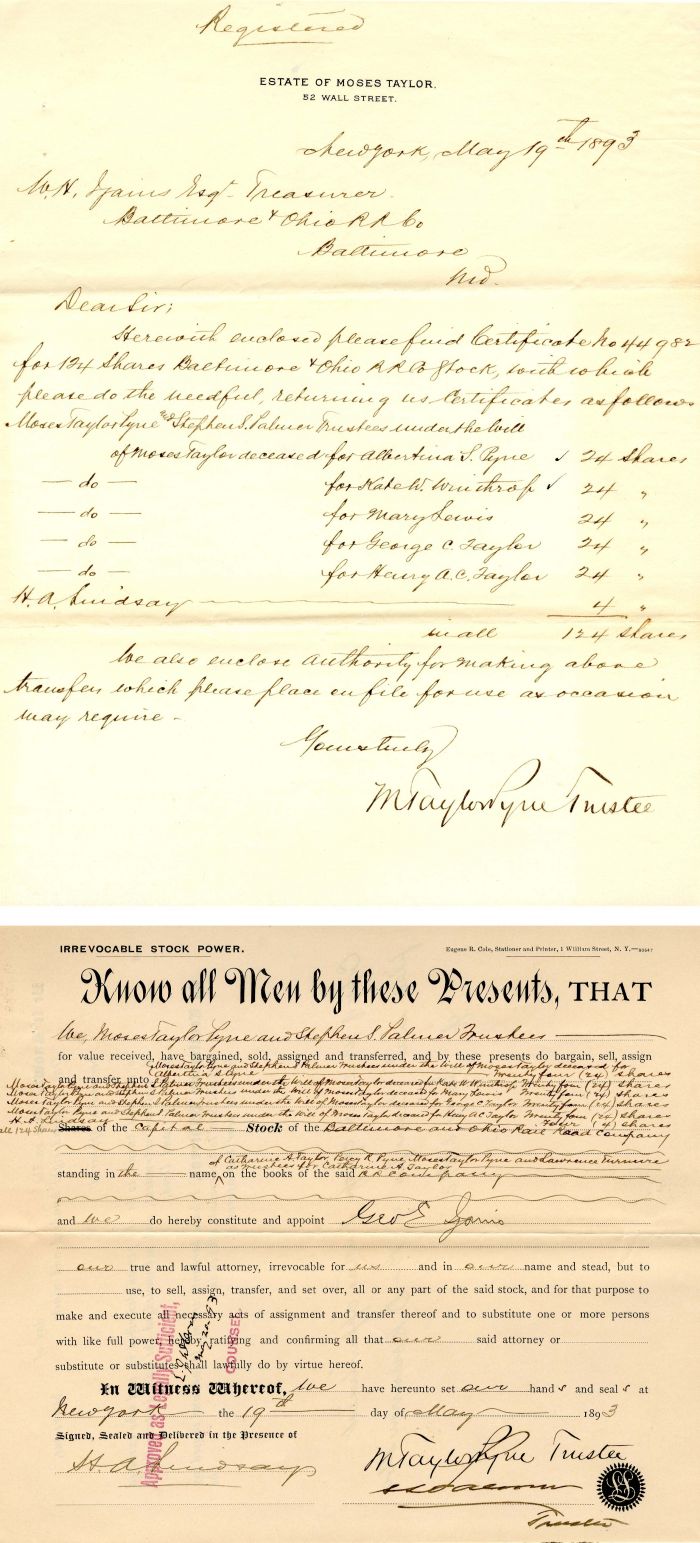 Registered
ESTATE OF MOSES TAYLOR.
52 WALL STREET.
New York, May 19th 1893
W. H. Ijams Esqr. Treasurer.
Baltimore & Ohio R R Co
Baltimore
Md.
Dear Sir;
Herewith enclosed please find Certificate No 44982
for 124 Shares Baltimore & Ohio R R Co Stock, with which
please do the needful, returning us Certificates as follows
Moses Taylor Pyne and Stephen S. Palmer Trustees under the Will
of Moses Taylor deceased for Albertina S. Pyne ✓ 24 Shares
— do — for Kate W. Winthrop ✓ 24 "
— do — for Mary Lewis 24 "
— do — for George C. Taylor 24 "
— do — for Henry A. C. Taylor 24 "
H. A. Lindsay 4 "
in all 124 Shares
We also enclose authority for making above
transfers which please place on file for use as occasion
may require -
Yours truly
M Taylor Pyne Trustee
IRREVOCABLE STOCK POWER.
Eugene R. Cole, Stationer and Printer, 1 William Street, N. Y.
Know all Men by these Presents, THAT
We, Moses Taylor Pyne and Stephen S. Palmer Trustees
for value received, have bargained, sold, assigned and transferred, and by these presents do bargain, sell, assign
Moses Taylor Pyne and Stephen S. Palmer Trustees under the Will of Moses Taylor deceased for
and transfer unto Albertina S. Pyne Twenty four (24) Shares
Moses Taylor Pyne and Stephen S. Palmer Trustees under the Will of Moses Taylor deceased for Kate W. Winthrop Twenty four (24) Shares
Moses Taylor Pyne and Stephen S. Palmer Trustees under the Will of Moses Taylor deceased for Mary Lewis Twenty four (24) Shares
Moses Taylor Pyne and Stephen S. Palmer Trustees under the Will of Moses Taylor deceased for George C. Taylor Twenty four (24) Shares
Moses Taylor Pyne and Stephen S. Palmer Trustees under the Will of Moses Taylor deceased for Henry A. C. Taylor Twenty four (24) Shares
H. A. Lindsay Four (4) Shares
all 124 Shares Shares of the Capital Stock of the Baltimore and Ohio Rail Road Company
of Catharine A. Taylor, Percy R. Pyne, Moses Taylor Pyne and Lawrence Turnure
as Trustees for Catharine A. Taylor
standing in the name on the books of the said R R Company
and We do hereby constitute and appoint Geo E Ijams
our true and lawful attorney, irrevocable for us and in our name and stead, but to
use, to sell, assign, transfer, and set over, all or any part of the said stock, and for that purpose to
make and execute all necessary acts of assignment and transfer thereof and to substitute one or more persons
with like full power, hereby ratifying and confirming all that our said attorney or
substitute or substitutes shall lawfully do by virtue hereof.
In Witness Whereof, We have hereunto set our hands and seals at
New York the 19th day of May 1893
Signed, Sealed and Delivered in the Presence of
H. A. Lindsay
M Taylor Pyne Trustee
S S Palmer
Trustee
LS
Approved as Legally Sufficient,
COUNSEL